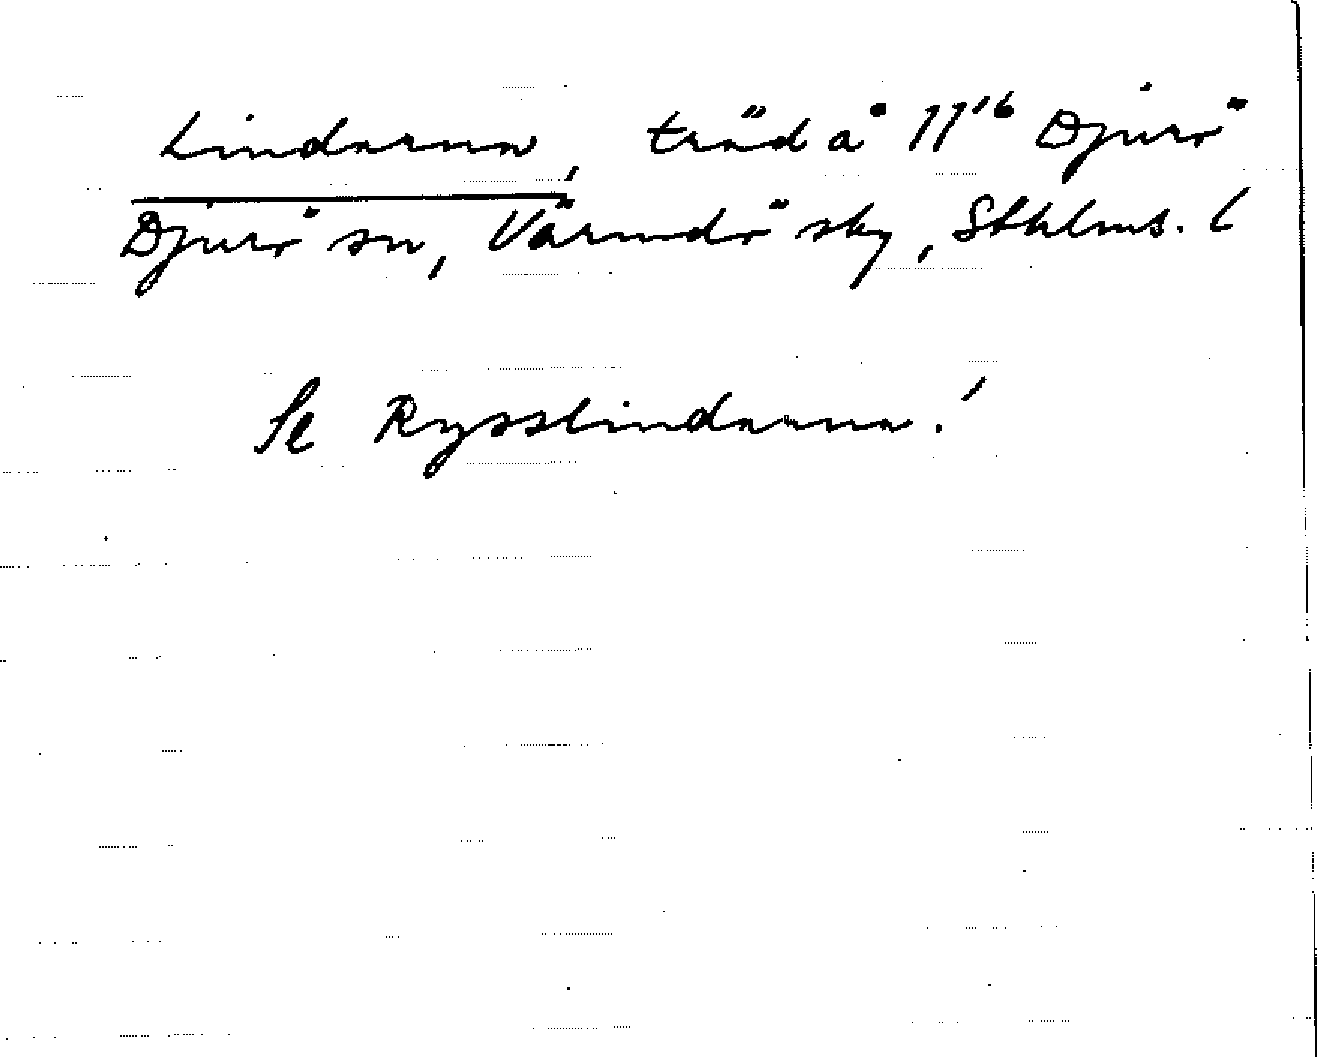 Lindarna, träd å 11¹⁶ Djurö
Djurö sn, Värmdö sky, Sthlms. l
Se Rysslindarna!